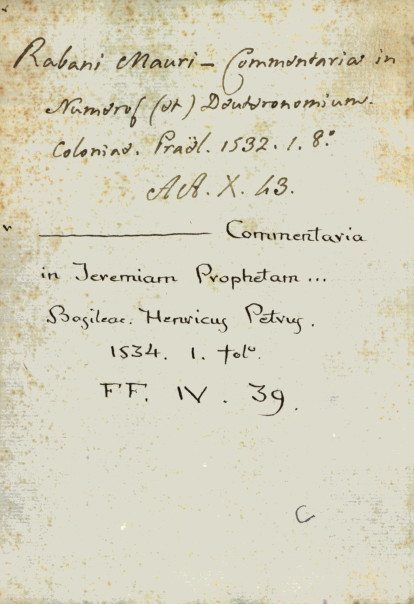 Rabani Mauri – Commentaria in
Numeros (et) Deuteronomium.
Coloniae. Präel. 1532. 1. 8.º
AA. X. 43.
———— Commentaria
in Jeremiam Prophetam ...
Basileae. Henricus Petrus.
1534. 1. folº.
FF. IV. 39.
C